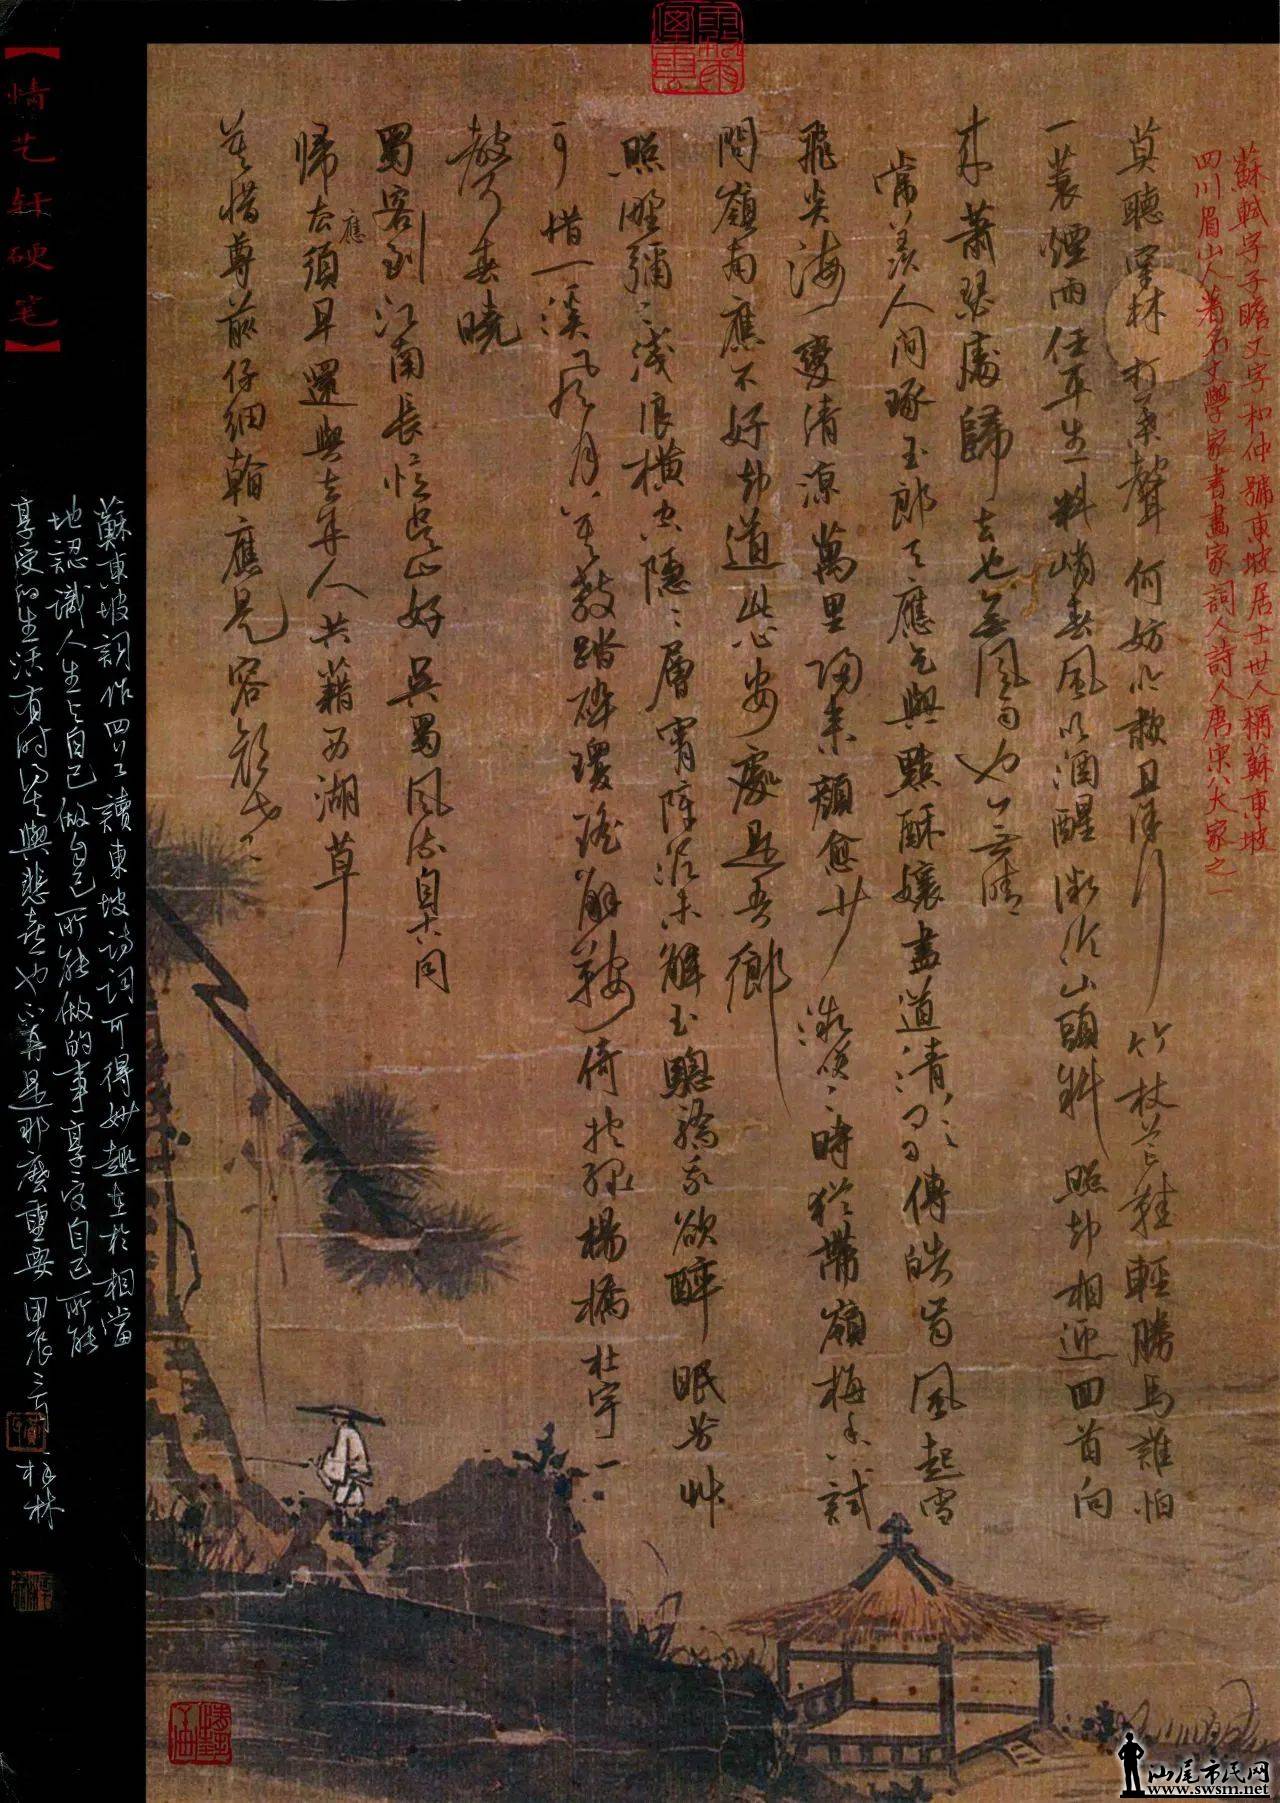 蘇軾字子瞻又字和仲號東坡居士世人稱蘇東坡
四川眉山人著名文學家書畫家詞人詩人唐宋八大家之一
莫聽穿林打葉聲何妨吟嘯且徐行竹杖芒鞋輕勝馬誰怕
一蓑煙雨任平生料峭春風吹酒醒微冷山頭斜照却相迎回首向
来蕭瑟處歸去也無風雨也無晴
常羨人間琢玉郎天應乞與點酥孃盡道清歌傳皓齒風起雪
飛炎海變清涼萬里歸来顏愈少微笑〻時猶帶嶺梅香試
問嶺南應不好却道此心安處是吾鄉
照野彌〻淺浪橫空隱〻層霄障泥未解玉驄驕我欲醉眠芳艸
可惜一溪風月莫教踏碎瓊瑤解鞍倚枕綠楊橋杜宇一
聲春曉
蜀客到江南長憶吳山好吳蜀風流自古同
歸去應須早還與去年人共藉西湖草
莫惜尊前仔細看應是容顏老
【情艺轩硬笔】
蘇東坡詞作四首讀東坡詩詞可得妙趣在於相當
地認識人生與自己做自己所能做的事享受自己所能
享受的生活有時得失與悲喜也不再是那麼重要 甲辰三月 林
汕尾市民网
www.swsm.net